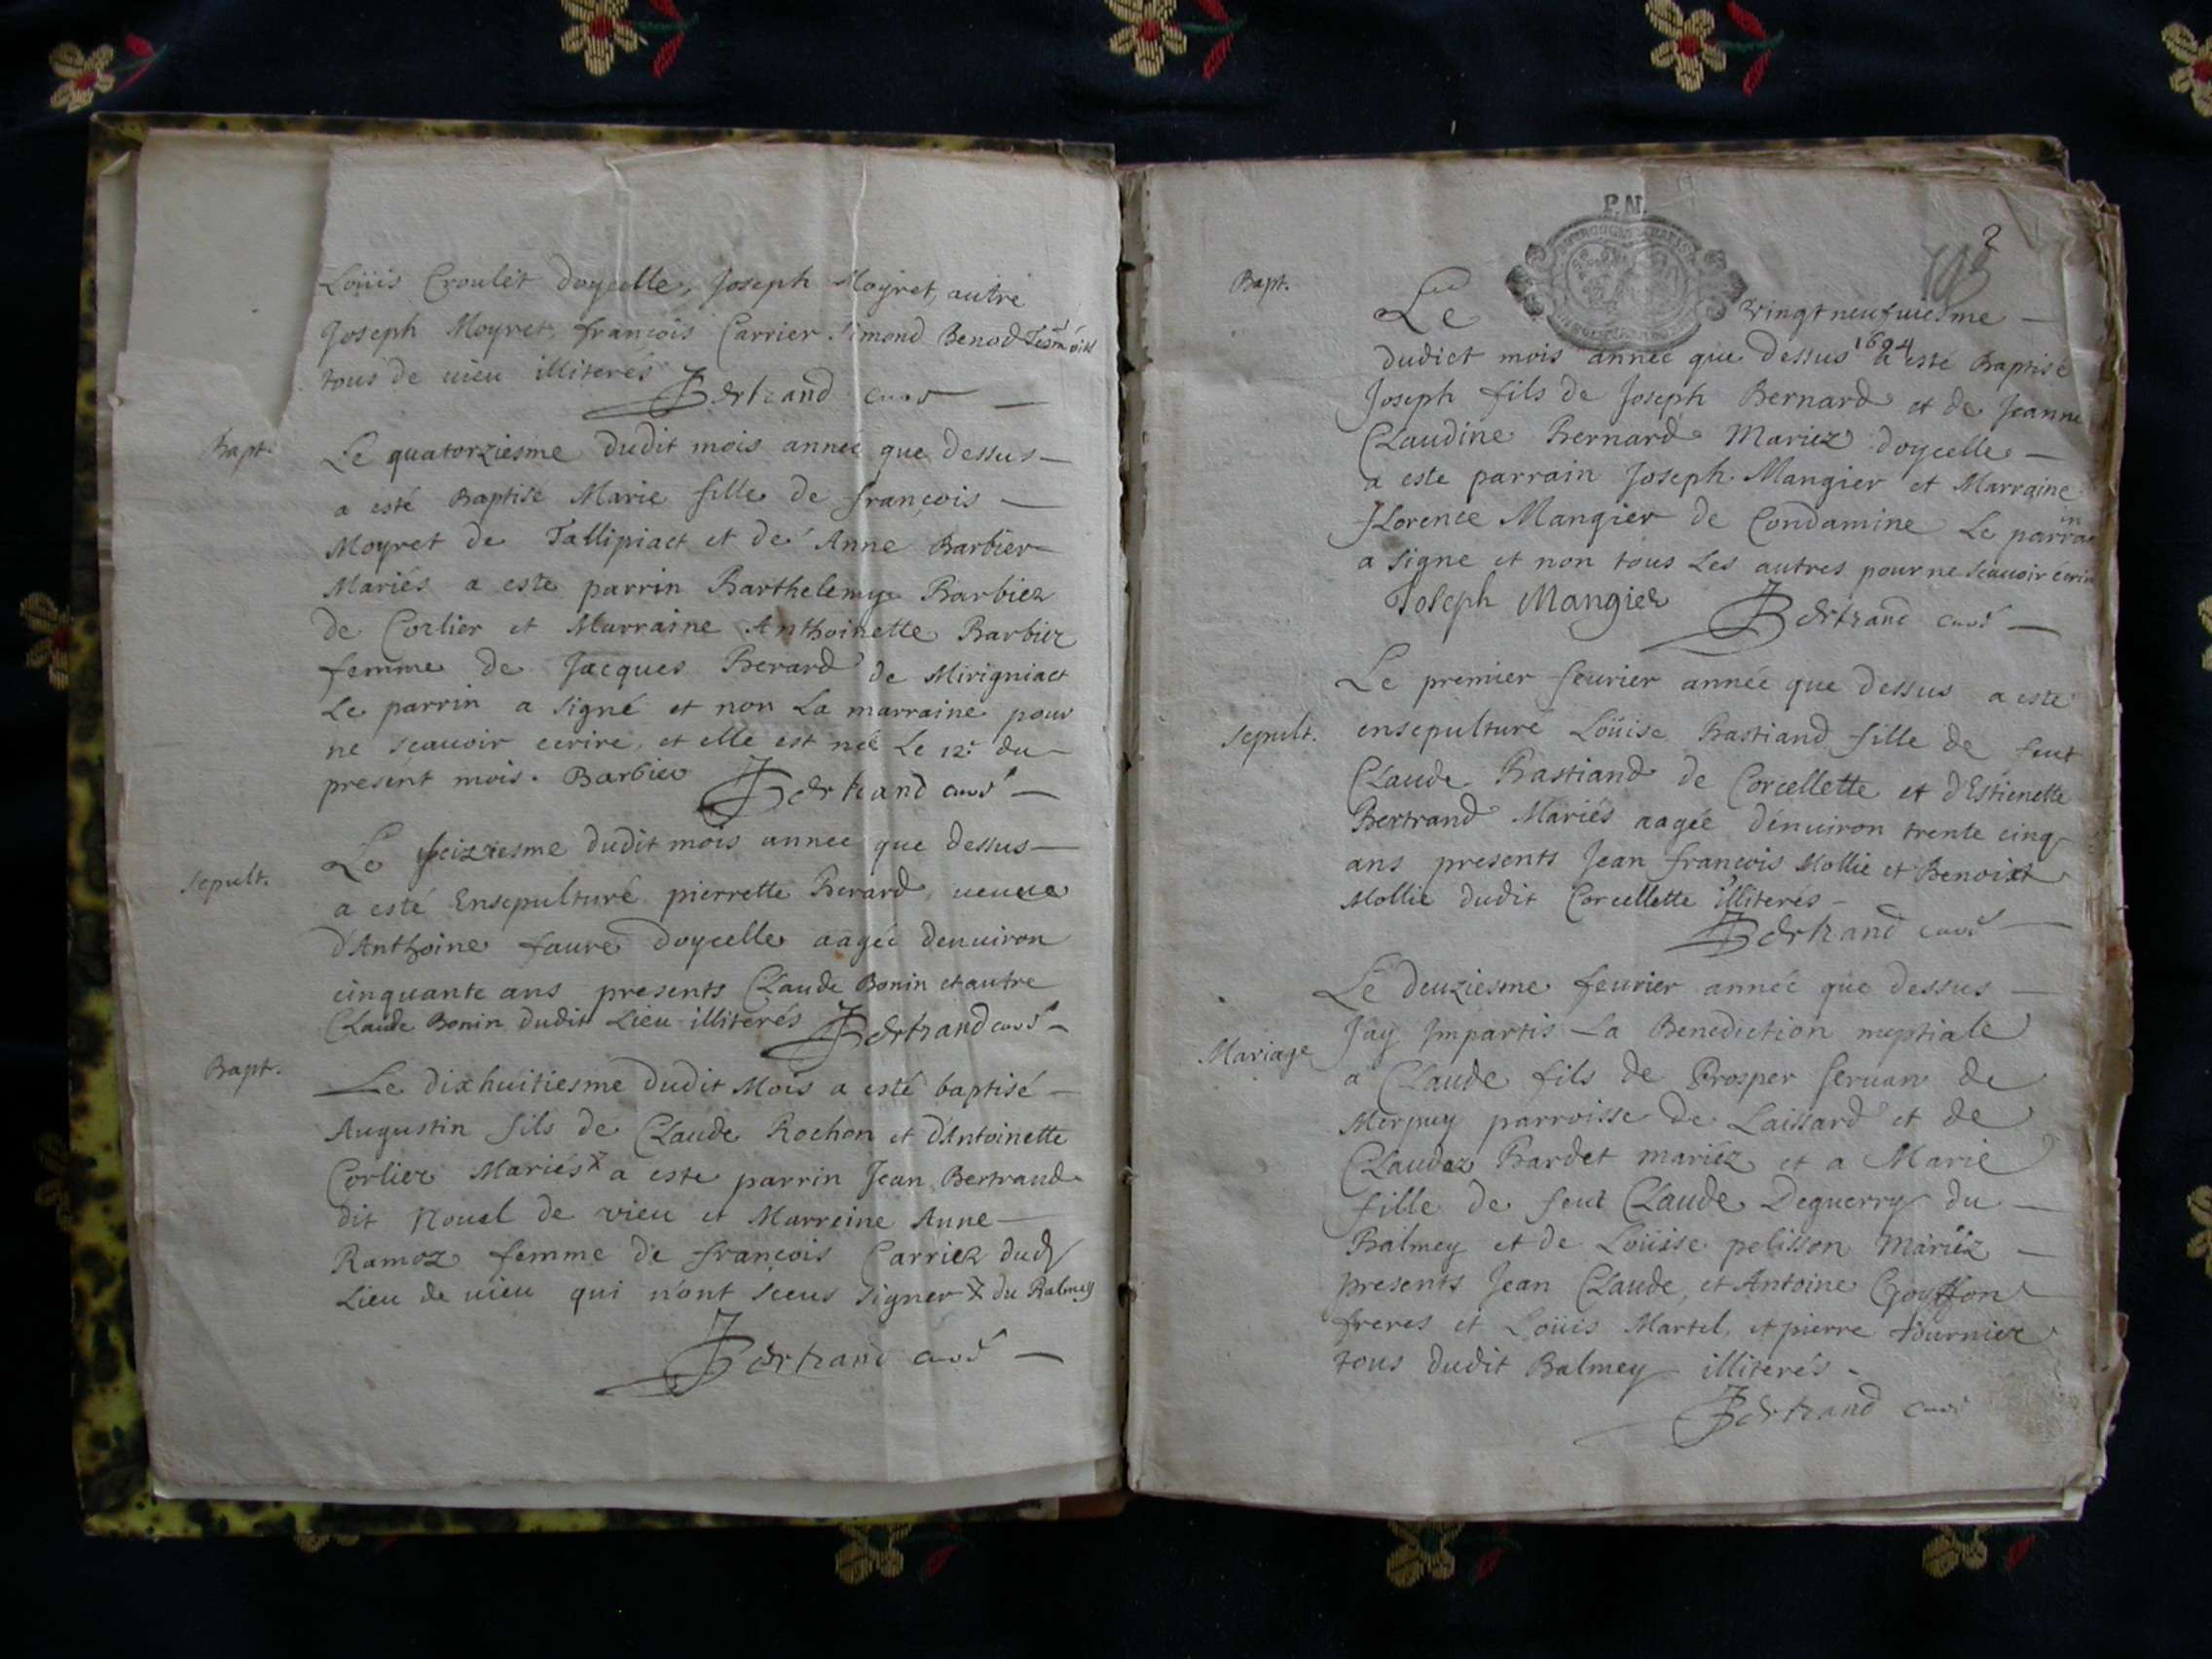 Loüis Croulet doycelle, Joseph Moyret, autre
Joseph Moyret, françois Carrier Simond Benod Tesmoins
tous de vieu illiterés
Bertrand curé
Bapt.
Le quatorziesme dudit mois année que dessus
a esté Baptisé Marie fille de françois
Moyret de Tallipiact et de Anne Barbier
Mariés a este parrin Barthelemy Barbier
de Corlier et Marraine Anthoinette Barbier
femme de Jacques Berard de Mirigniact
Le parrin a signé et non La marraine pour
ne scauoir ecrire et elle est née Le 12e du
present mois. Barbier
Bertrand curé
Sepult.
Le seiziesme dudit mois annee que dessus
a esté Ensepulturé pierrette Berard veuue
d'Anthoine faure doycelle aagée denuiron
cinquante ans presents Claude Bonin et autre
Claude Bonin dudit Lieu illiterés Bertrand curé
Bapt.
Le dixhuitiesme dudit Mois a esté baptisé
Augustin fils de Claude Rochon et d'Antoinette
Corlier Mariés x a este parrin Jean Bertrand
dit Nouel de vieu et Marreine Anne
Ramoz femme de françois Carrier dud
Lieu de uieu qui n'ont sceus signer x du Balmey
Bertrand curé
P.N.
2
Bapt.
Le vingtneufuiesme
dudict mois année que dessus 1694 a esté Baptisé
Joseph fils de Joseph Bernard et de Jeanne
Claudine Bernard Mariez doycelle
a este parrain Joseph Mangier et Marraine
Florence Mangier de Condamine Le parrain
a signe et non tous Les autres pour ne scauoir écrire
Joseph Mangier
Bertrand curé
Sepult.
Le premier feurier année que dessus a este
ensepulturé Loüise Bastiand fille de feut
Claude Bastiand de Corcellette et d'Estienette
Bertrand Mariés aagée dénuiron trente cinq
ans presents Jean françois Mollie et Benoixt
Mollie dudit Corcellette illiterés
Bertrand curé
Mariage
Le deuziesme feurier année que dessus
J'ay Impartis La Benediction nuptiale
a Claude fils de Prosper seruan de
Merpuy parroisse de Laissard et de
Claudaz Bardet mariéz et a Marie
fille de feut Claude Deguerry du
Balmey et de Loüise pelisson mariéz
presents Jean Claude, et Antoine Goyffon
freres et Loüis Martel, et pierre fournier
tous dudit Balmey illiterés
Bertrand curé